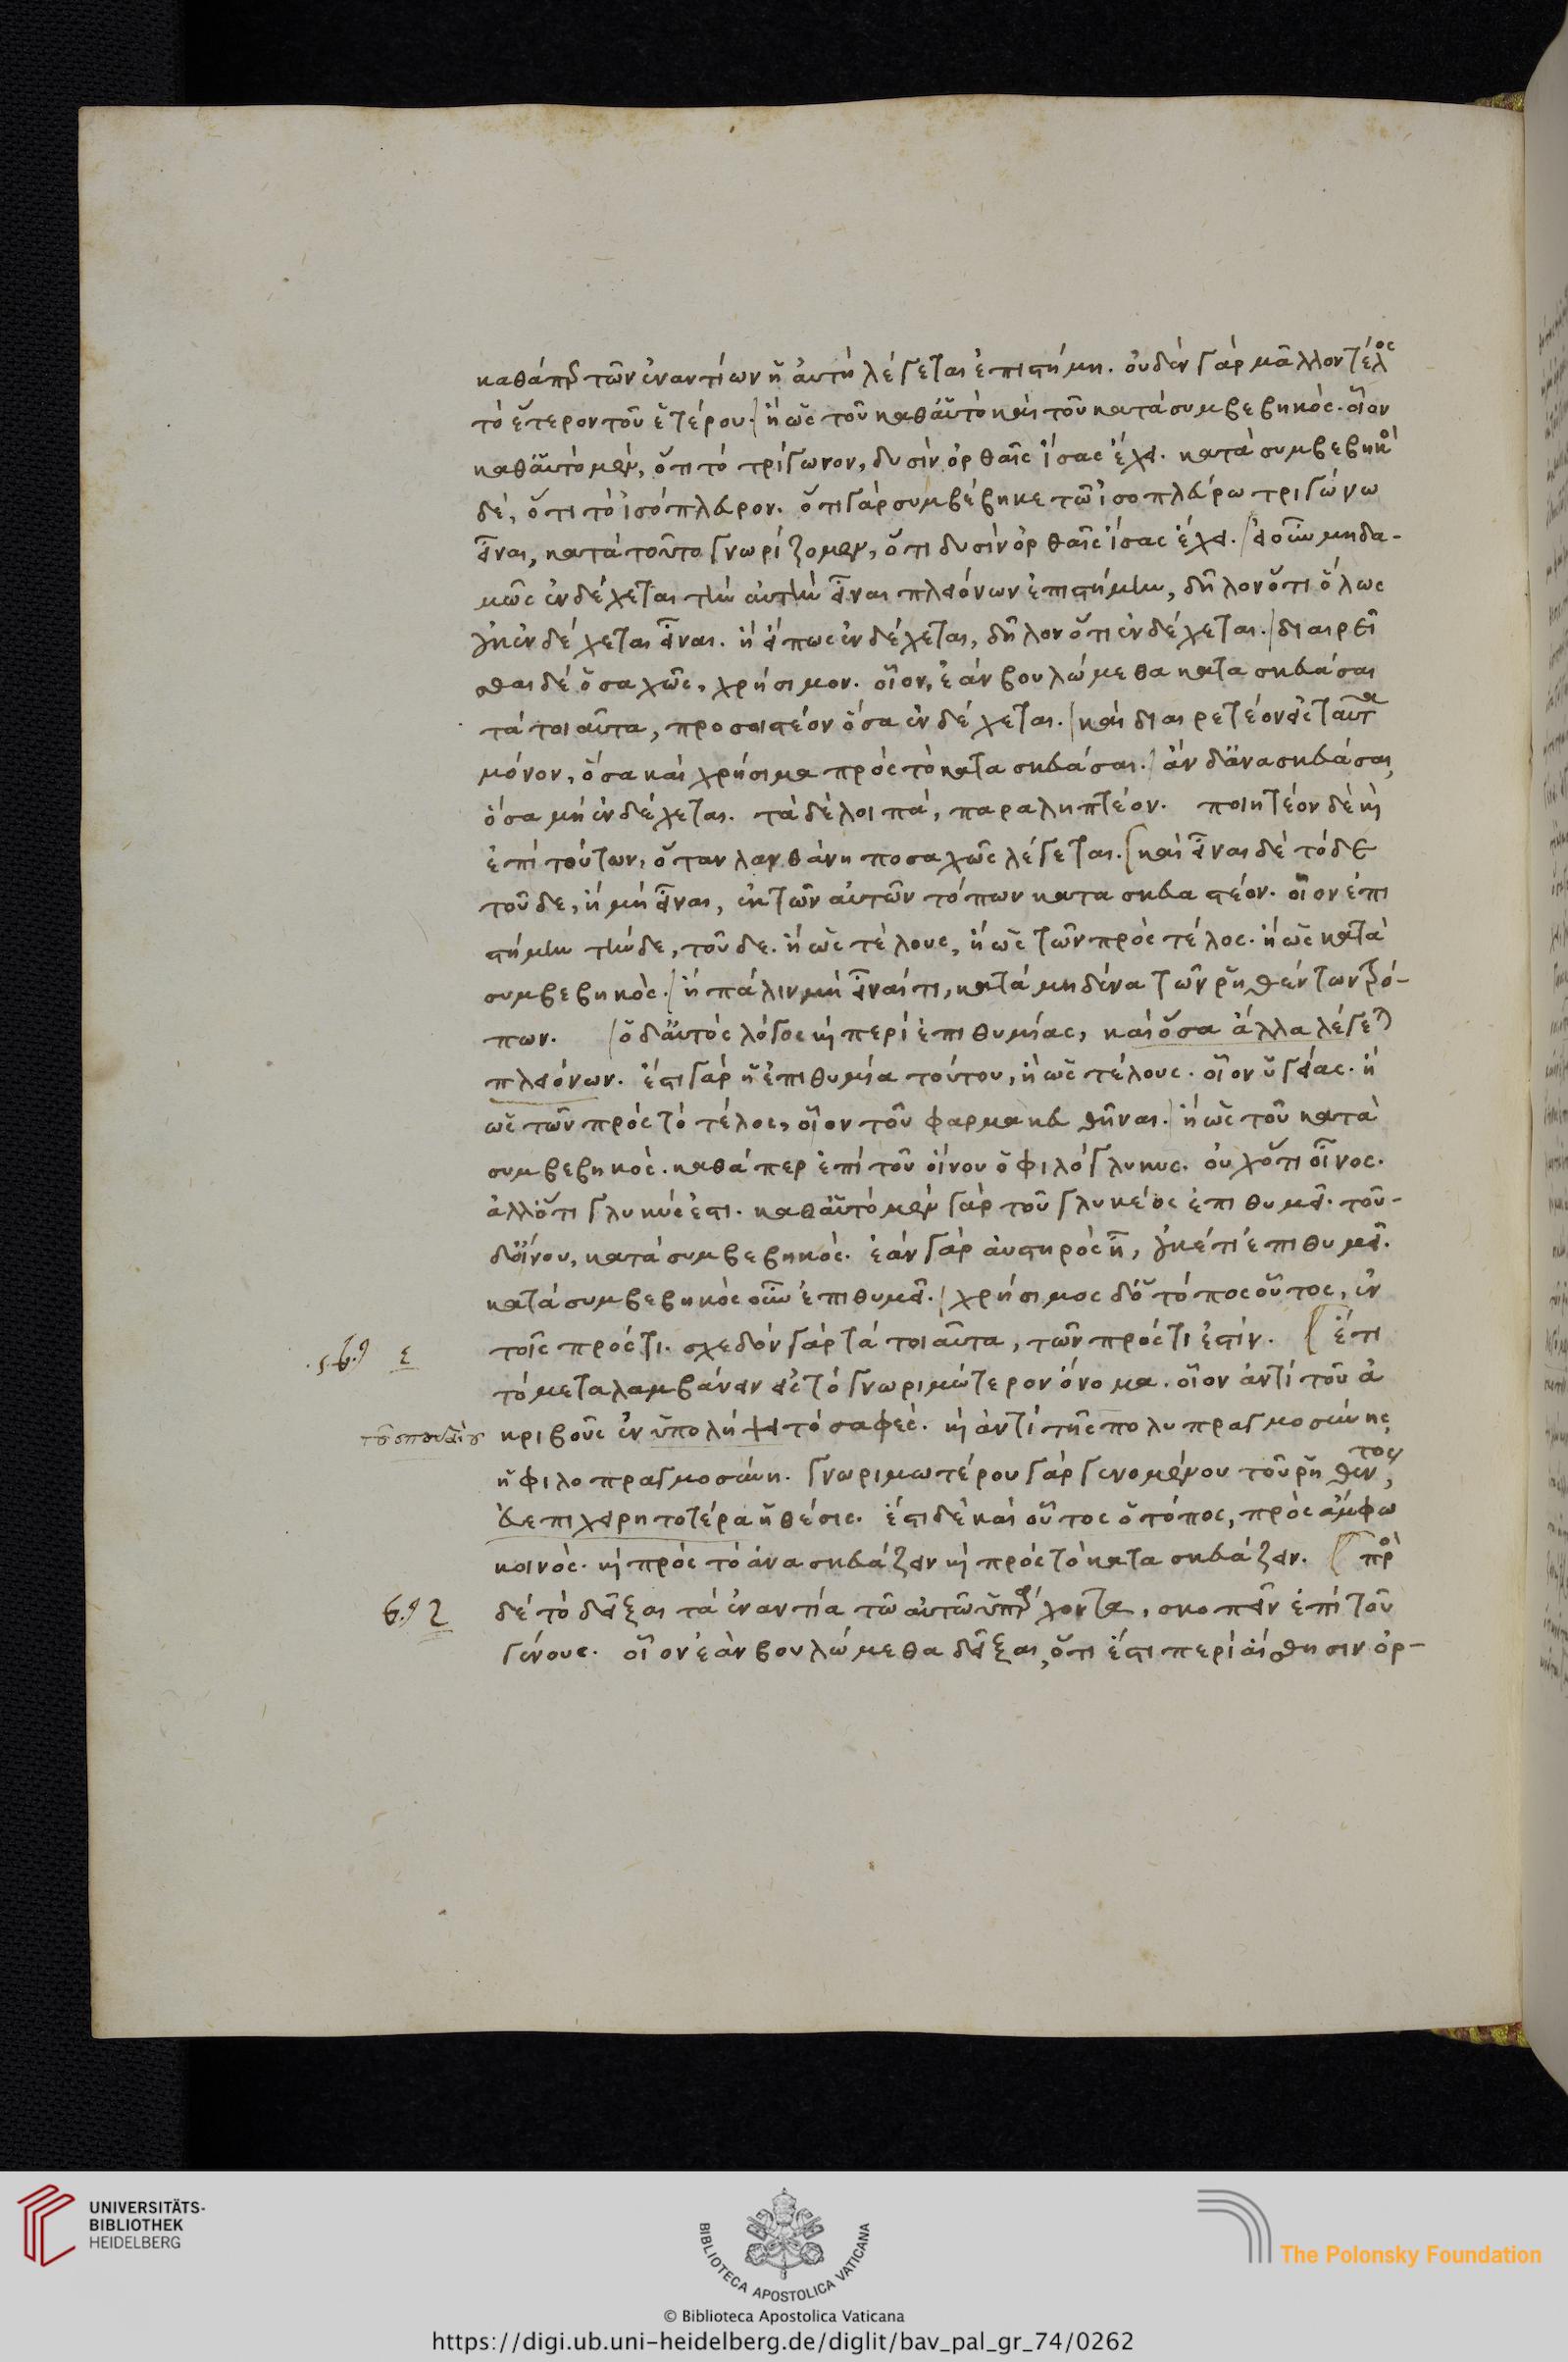 καθάπερ τῶν ἐναντίων ἡ αὐτὴ λέγεται ἐπιστήμη. οὐδὲν γὰρ μᾶλλον τέλος
τὸ ἕτερον τοῦ ἑτέρου. ἢ ὡς τοῦ καθ' αὑτὸ καὶ τοῦ κατὰ συμβεβηκὸς. οἷον
καθ' αὑτὸ μὲν, ὅτι τὸ τρίγωνον, δυσὶν ὀρθαῖς ἴσας ἔχει. κατὰ συμβεβηκὸς
δὲ, ὅτι τὸ ἰσόπλευρον. ὅτι γὰρ συμβέβηκε τῶ ἰσοπλεύρω τριγώνω
εἶναι, κατὰ τοῦτο γνωρίζομεν, ὅτι δυσὶν ὀρθαῖς ἴσας ἔχει. εἰ οὖν μηδα-
μῶς ἐνδέχεται τὴν αὐτὴν εἶναι πλειόνων ἐπιστήμην, δῆλον ὅτι ὅλως
οὐκ ἐνδέχεται εἶναι. ἢ εἴ πως ἐνδέχεται, δῆλον ὅτι ἐνδέχεται. διαιρεῖ
σθαι δὲ ὁσαχῶς, χρήσιμον. οἷον, ἐὰν βουλώμεθα κατασκευάσαι
τὰ τοιαῦτα, προσοιστέον ὅσα ἐνδέχεται. καὶ διαιρετέον εἰς ταῦτα
μόνον, ὅσα καὶ χρήσιμα πρὸς τὸ κατασκευάσαι. ἂν δ' ἀνασκευάσαι,
ὅσα μὴ ἐνδέχεται. τὰ δὲ λοιπὰ, παραληπτέον. ποιητέον δὲ καὶ
ἐπὶ τούτων, ὅταν λανθάνη ποσαχῶς λέγεται. καὶ εἶναι δὲ τόδε
τοῦδε, ἢ μὴ εἶναι, ἐκ τῶν αὐτῶν τόπων κατασκευαστέον. οἷον ἐπι
στήμην τήνδε, τοῦδε. ἢ ὡς τέλους, ἢ ὡς τῶν πρὸς τέλος. ἢ ὡς κατὰ
συμβεβηκὸς. ἢ πάλιν μὴ εἶναί τι, κατὰ μηδένα τῶν ῥηθέντων τρό-
πων. ὁ δ' αὐτὸς λόγος καὶ περὶ ἐπιθυμίας, καὶ ὅσα ἄλλα λέγεται
πλειόνων. ἔστι γὰρ ἡ ἐπιθυμία τούτου, ἢ ὡς τέλους. οἷον ὑγείας. ἢ
ὡς τῶν πρὸς τὸ τέλος, οἷον τοῦ φαρμακευθῆναι. ἢ ὡς τοῦ κατὰ
συμβεβηκὸς. καθάπερ ἐπὶ τοῦ οἴνου ὁ φιλόγλυκυς. οὐχ ὅτι οἶνος.
ἀλλ' ὅτι γλυκύς ἐστι. καθ' αὑτὸ μὲν γὰρ τοῦ γλυκέος ἐπιθυμεῖ. τοῦ-
δ' οἴνου, κατὰ συμβεβηκὸς. ἐὰν γὰρ αὐστηρὸς ἦ, οὐκέτι ἐπιθυμεῖ.
κατὰ συμβεβηκὸς οὖν ἐπιθυμεῖ. χρήσιμος δ' ὁ τόπος οὗτος, ἐν
τοῖς πρός τι. σχεδὸν γὰρ τὰ τοιαῦτα, τῶν πρός τι ἐστίν. ἔτι
τὸ μεταλαμβάνειν εἰς τὸ γνωριμώτερον ὄνομα. οἷον ἀντὶ τοῦ ἀ
κριβοῦς ἐν ὑπολήψει τὸ σαφὲς. καὶ ἀντὶ τῆς πολυπραγμοσύνης,
ἡ φιλοπραγμοσύνη. γνωριμωτέρου γὰρ γενομένου τοῦ ῥηθέντος,
εὐεπιχειρητοτέρα ἡ θέσις. ἔστι δὲ καὶ οὗτος ὁ τόπος, πρὸς ἄμφω
κοινὸς. καὶ πρὸς τὸ ἀνασκευάζειν καὶ πρὸς τὸ κατασκευάζειν. πρὸς
δὲ τὸ δεῖξαι τὰ ἐναντία τῶ αὐτῶ ὑπάρχοντα, σκοπεῖν ἐπὶ τοῦ
γένους. οἷον ἐὰν βουλώμεθα δεῖξαι, ὅτι ἔστι περὶ αἴσθησιν ὀρ-
ε
UNIVERSITÄTS-
BIBLIOTHEK
HEIDELBERG
BIBLIOTECA APOSTOLICA VATICANA
The Polonsky Foundation
© Biblioteca Apostolica Vaticana
https://digi.ub.uni-heidelberg.de/diglit/bav_pal_gr_74/0262